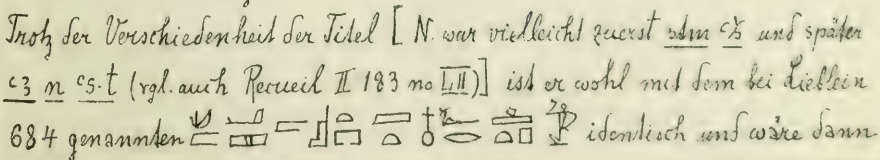 Trotz der Verschiedenheit der Titel [ N. war vielleicht zuerst sdm ꜥš und später
ꜥꜣ n ꜥs·t (vgl. auch Recueil II 183 no LII)] ist er wohl mit dem bei Lieblein
684 genannten identisch und wäre dann